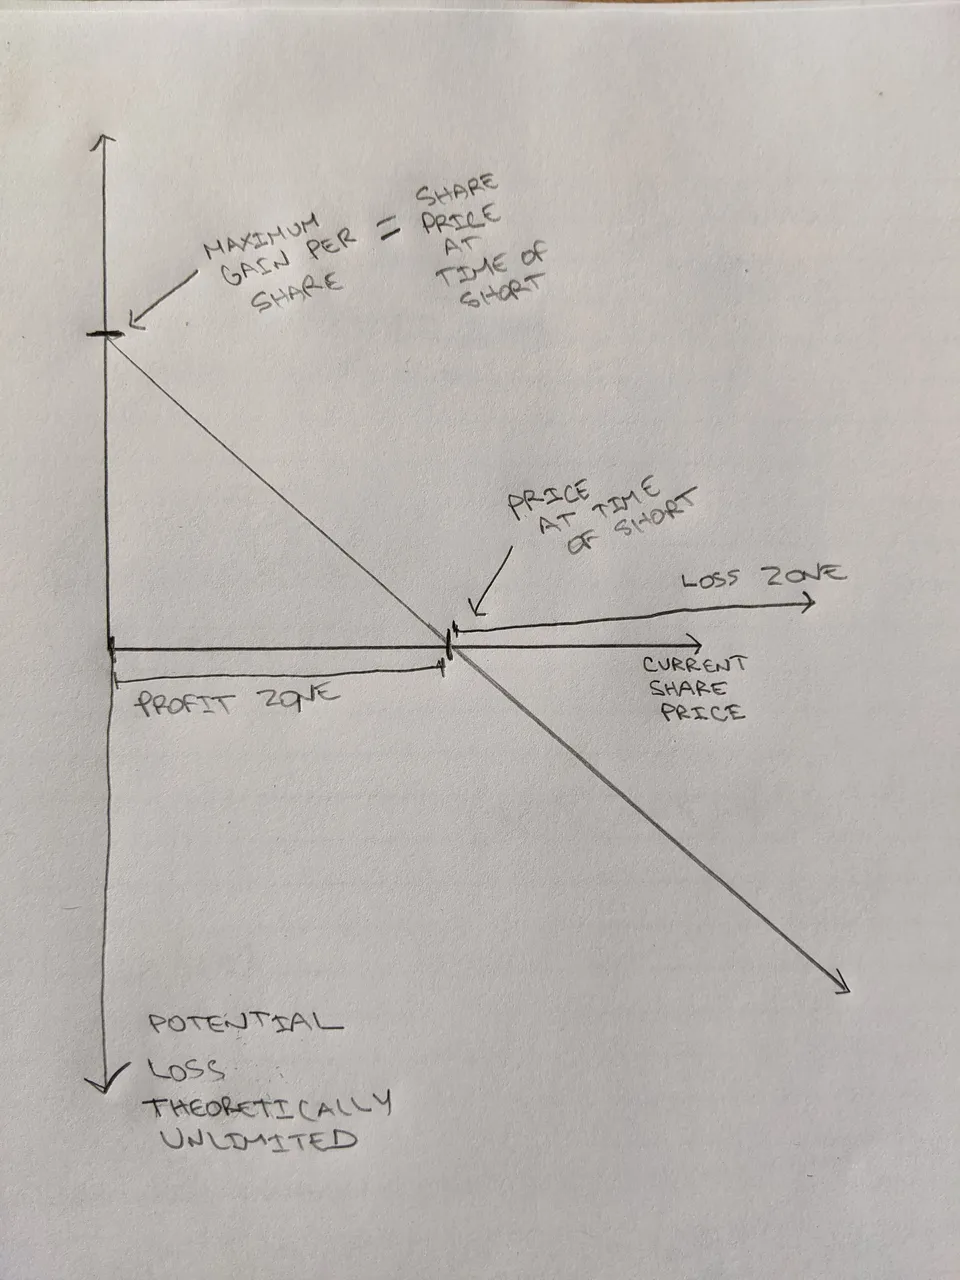 MAXIMUM
GAIN PER
SHARE
=
SHARE
PRICE
AT
TIME OF
SHORT
PRICE
AT TIME
OF SHORT
LOSS ZONE
CURRENT
SHARE
PRICE
PROFIT ZONE
POTENTIAL
LOSS
THEORETICALLY
UNLIMITED